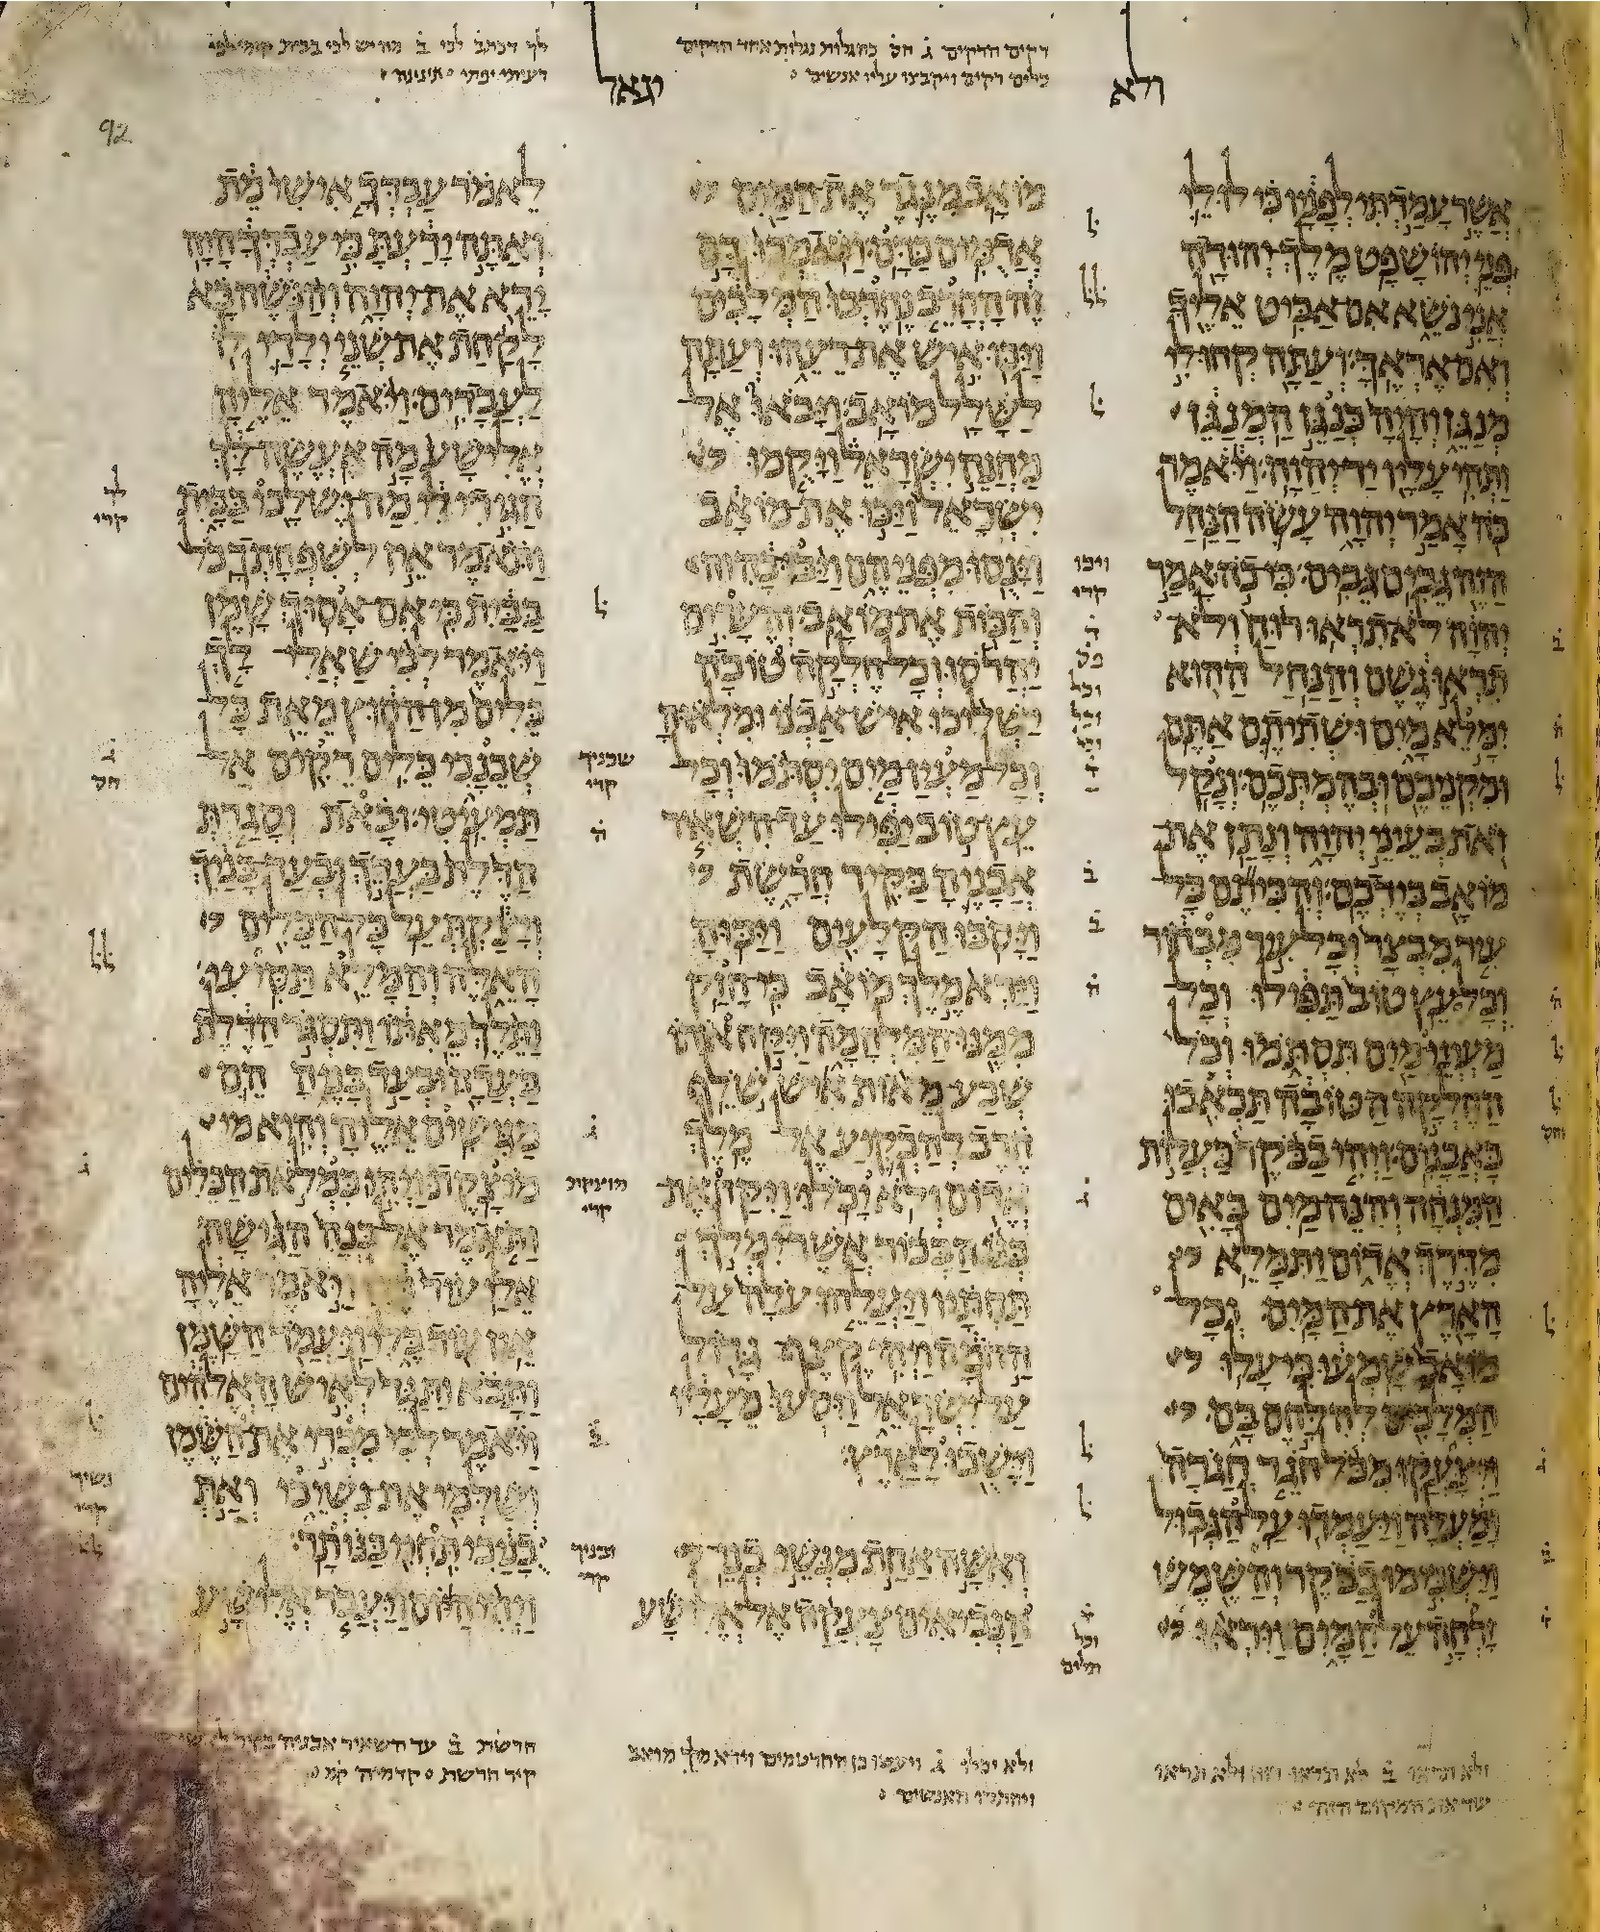 דקים הדקים ג̇ חס̇ בתגלות נגלות אחד הרקים
כלים רקים ויקבצו עליו אנשים
לך דכתב̇ לכי ב̇ מה יש לכי בבית קומי לכי
רעיתי יפתי תינינה
אֲשֶׁר עָמַדְתִּי לְפָנָיו כִּי לוּלֵי
פְּנֵי יְהוֹשָׁפָט מֶלֶךְ יְהוּדָה
אֲנִי נֹשֵׂא אִם אַבִּיט אֵלֶיךָ
וְאִם אֶרְאֶךָּ וְעַתָּה קְחוּ לִי
מְנַגֵּן וְהָיָה כְּנַגֵּן הַמְנַגֵּן
וַתְּהִי עָלָיו יַד יְהוָה וַיֹּאמֶר
כֹּה אָמַר יְהוָה עָשֹׂה הַנַּחַל
הַזֶּה גֵּבִים גֵּבִים כִּי כֹה אָמַר
יְהוָה לֹא תִרְאוּ רוּחַ וְלֹא
תִרְאוּ גֶשֶׁם וְהַנַּחַל הַהוּא
יִמָּלֵא מָיִם וּשְׁתִיתֶם אַתֶּם
וּמִקְנֵיכֶם וּבְהֶמְתְּכֶם וְנָקַל
זֹאת בְּעֵינֵי יְהוָה וְנָתַן אֶת
מוֹאָב בְּיֶדְכֶם וְהִכִּיתֶם כָּל
עִיר מִבְצָר וְכָל עִיר מִבְחוֹר
וְכָל עֵץ טוֹב תַּפִּילוּ וְכָל
מַעְיְנֵי מַיִם תִּסְתֹּמוּ וְכֹל
הַחֶלְקָה הַטּוֹבָה תַּכְאִבוּ
בָּאֲבָנִים וַיְהִי בַבֹּקֶר כַּעֲלוֹת
הַמִּנְחָה וְהִנֵּה מַיִם בָּאִים
מִדֶּרֶךְ אֱדוֹם וַתִּמָּלֵא
הָאָרֶץ אֶת הַמָּיִם וְכָל
מוֹאָב שָׁמְעוּ כִּי עָלוּ
הַמְּלָכִים לְהִלָּחֶם בָּם
וַיִּצָּעֲקוּ מִכֹּל חֹגֵר חֲגֹרָה
וָמַעְלָה וַיַּעַמְדוּ עַל הַגְּבוּל
וַיַּשְׁכִּימוּ בַבֹּקֶר וְהַשֶּׁמֶשׁ
זָרְחָה עַל הַמָּיִם וַיִּרְאוּ
מוֹאָב מִנֶּגֶד אֶת הַמַּיִם
אֲדֻמִּים כַּדָּם וַיֹּאמְרוּ דָּם
זֶה הָחֳרֵב נֶחֶרְבוּ הַמְּלָכִים
וַיַּכּוּ אִישׁ אֶת רֵעֵהוּ וְעַתָּה
לַשָּׁלָל מוֹאָב וַיָּבֹאוּ אֶל
מַחֲנֵה יִשְׂרָאֵל וַיָּקֻמוּ
יִשְׂרָאֵל וַיַּכּוּ אֶת מוֹאָב
וַיָּנֻסוּ מִפְּנֵיהֶם וַיַּבּוּ בָהּ
וְהַכּוֹת אֶת מוֹאָב וְהֶעָרִים
יַהֲרֹסוּ וְכָל חֶלְקָה טוֹבָה
יַשְׁלִיכוּ אִישׁ אַבְנוֹ וּמִלְאוּהָ
וְכָל מַעְיַן מַיִם יִסְתֹּמוּ וְכָל
עֵץ טוֹב יַפִּילוּ עַד הִשְׁאִיר
אֲבָנֶיהָ בַּקִּיר חֲרָשֶׂת
וַיָּסֹבּוּ הַקַּלָּעִים וַיַּכּוּהָ
וַיַּרְא מֶלֶךְ מוֹאָב כִּי חָזַק
מִמֶּנּוּ הַמִּלְחָמָה וַיִּקַּח אוֹתוֹ
שְׁבַע מֵאוֹת אִישׁ שֹׁלֵף
חֶרֶב לְהַבְקִיעַ אֶל מֶלֶךְ
אֱדוֹם וְלֹא יָכֹלוּ וַיִּקַּח אֶת
בְּנוֹ הַבְּכוֹר אֲשֶׁר יִמְלֹךְ
תַּחְתָּיו וַיַּעֲלֵהוּ עֹלָה עַל
הַחֹמָה וַיְהִי קֶצֶף גָּדוֹל
עַל יִשְׂרָאֵל וַיִּסְעוּ מֵעָלָיו
וַיָּשֻׁבוּ לָאָרֶץ
וְאִשָּׁה אַחַת מִנְּשֵׁי בְנֵי
הַנְּבִיאִים צָעֲקָה אֶל אֱלִישָׁע
לֵאמֹר עַבְדְּךָ אִישִׁי מֵת
וְאַתָּה יָדַעְתָּ כִּי עַבְדְּךָ הָיָה
יָרֵא אֶת יְהוָה וְהַנֹּשֶׁה בָּא
לָקַחַת אֶת שְׁנֵי יְלָדַי לוֹ
לַעֲבָדִים וַיֹּאמֶר אֵלֶיהָ
אֱלִישָׁע מָה אֶעֱשֶׂה לָּךְ
הַגִּידִי לִי מַה יֶּשׁ לָכִי בַּבָּיִת
וַתֹּאמֶר אֵין לְשִׁפְחָתְךָ כֹל
בַּבַּיִת כִּי אִם אָסוּךְ שָׁמֶן
וַיֹּאמֶר לְכִי שַׁאֲלִי לָךְ
כֵּלִים מִן הַחוּץ מֵאֵת כָּל
שְׁכֵנָכִי כֵּלִים רֵקִים אַל
תַּמְעִיטִי וּבָאת וְסָגַרְתְּ
הַדֶּלֶת בַּעֲדֵךְ וּבְעַד בָּנַיִךְ
וְיָצַקְתְּ עַל כָּל הַכֵּלִים
הָאֵלֶּה וְהַמָּלֵא תַּסִּיעִי
וַתֵּלֶךְ מֵאִתּוֹ וַתִּסְגֹּר הַדֶּלֶת
בַּעֲדָהּ וּבְעַד בָּנֶיהָ הֵם
מַגִּישִׁים אֵלֶיהָ וְהִיא מי
מוֹצָקֶת וַיְהִי כִּמְלֹאת הַכֵּלִים
וַתֹּאמֶר אֶל בְּנָהּ הַגִּישָׁה
אֵלַי עוֹד וַיֹּאמֶר אֵלֶיהָ
אֵין עוֹד כֶּלִי וַיַּעֲמֹד הַשָּׁמֶן
וַתָּבֹא וַתַּגֵּד לְאִישׁ הָאֱלֹהִים
וַיֹּאמֶר לְכִי מִכְרִי אֶת הַשֶּׁמֶן
וְשַׁלְּמִי אֶת נִשְׁיֵכִי וְאַתְּ
בָּנַיְכִי תִּחְיִי בַּנּוֹתָר
וַיְהִי הַיּוֹם וַיַּעֲבֹר אֱלִישָׁע
ולא יכלו ג̇ ויעשו כן החרטמים וירא מלך מואב
ויחתרו האנשים
חרשת ב̇ עד השאיר אבניה בקיר
קיר חרשת קדמיה קמ̇